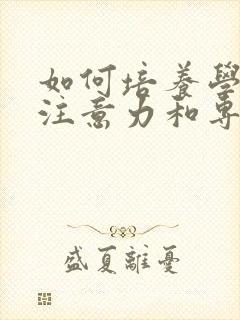 如何培養學
注意力和專
盛夏離憂